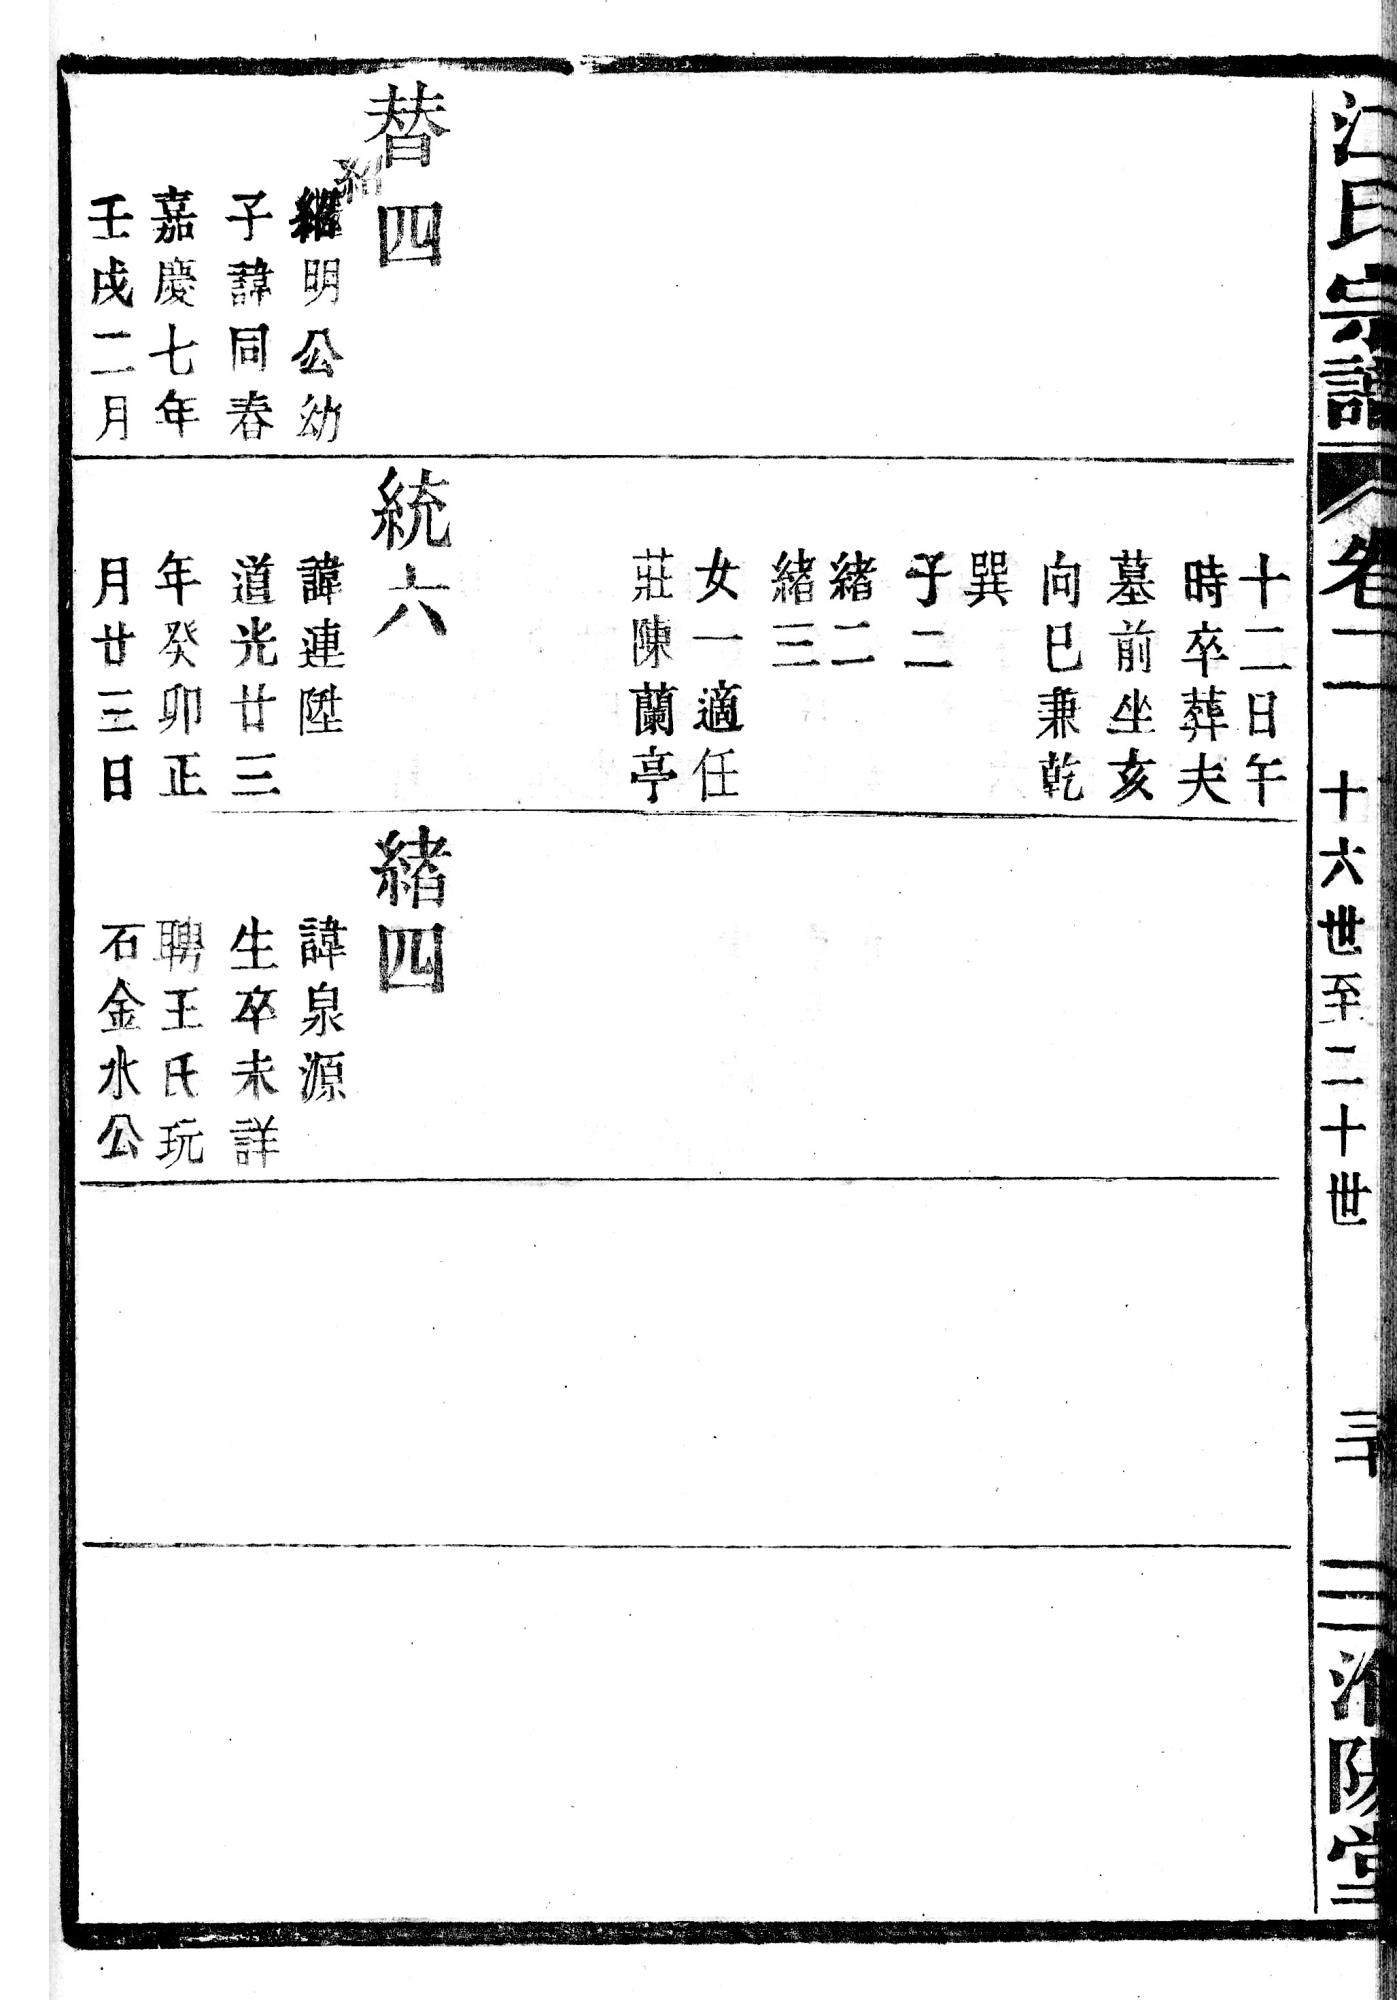 江氏宗譜
卷二
十六世至二十世
三十
淮陽堂
替四
紹
繼明公幼
子諱同春
嘉慶七年
壬戌二月
十二日午
時卒葬夫
墓前坐亥
向巳兼乾
巽
子二
緒二
緒三
女一適任
莊陳蘭亭
統六
諱連陞
道光廿三
年癸卯正
月廿三日
緒四
諱泉源
生卒未詳
聘王氏玩
石金水公